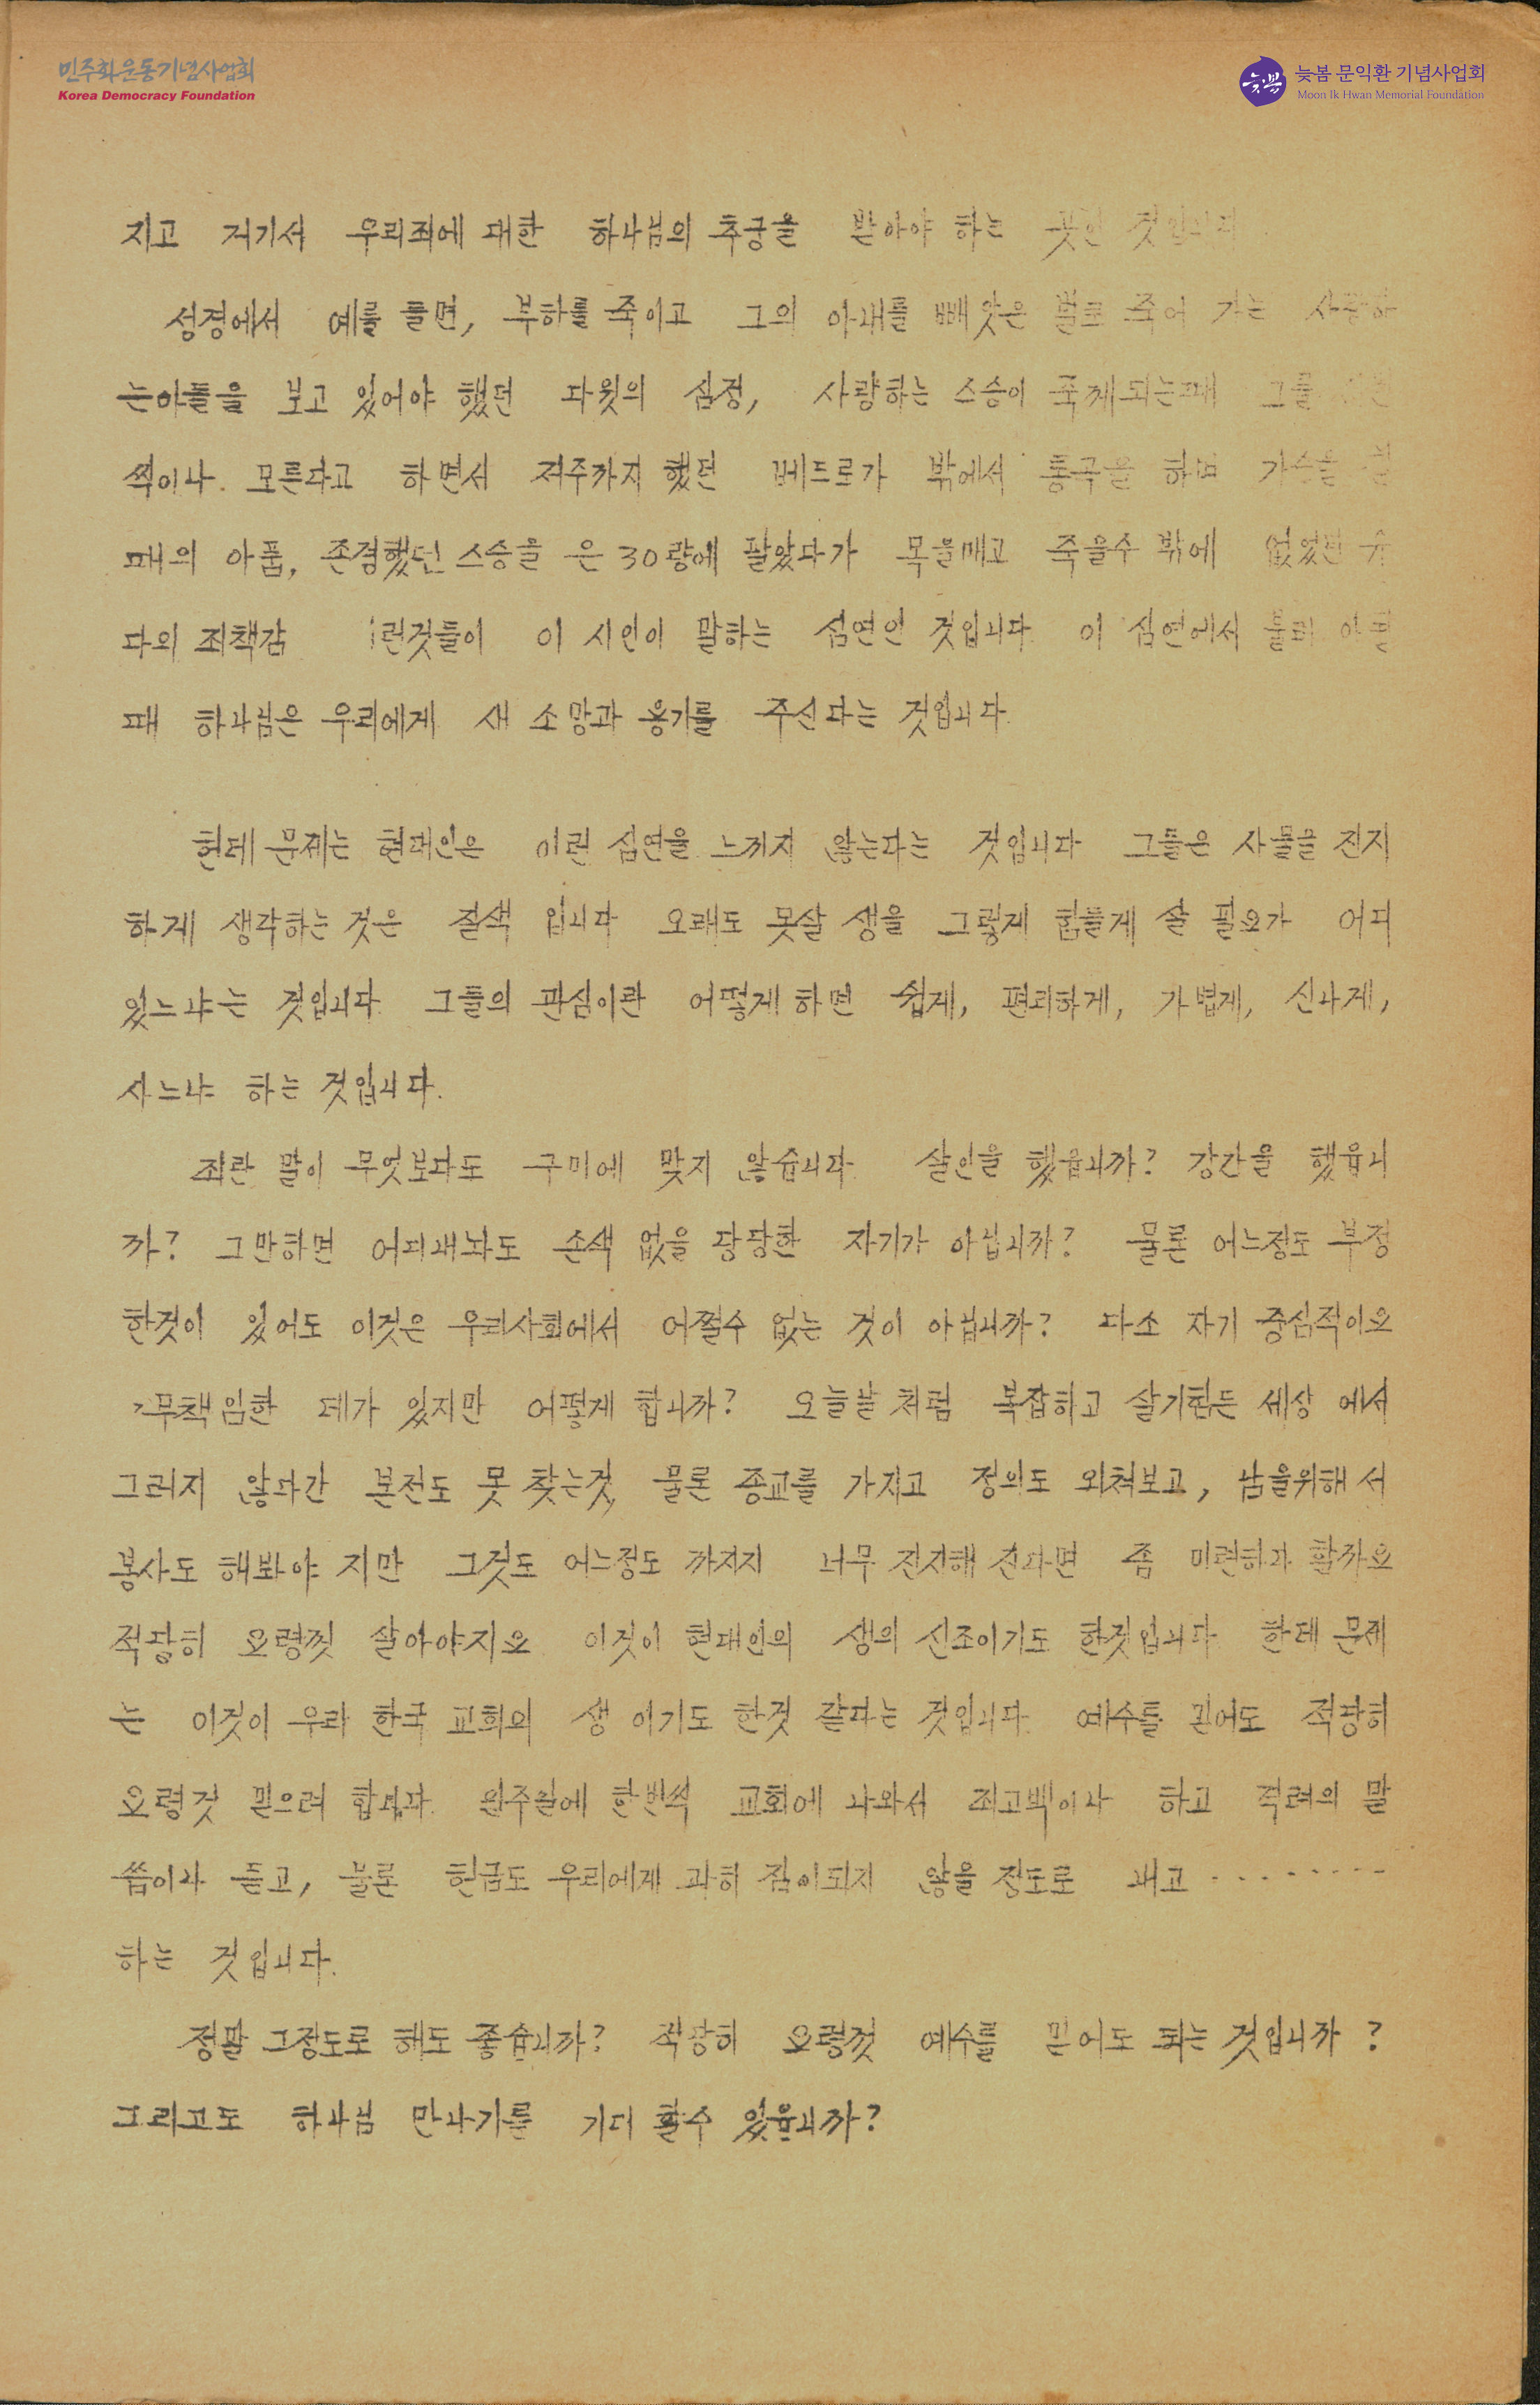 민주화운동기념사업회
Korea Democracy Foundation
늦봄 늦봄 문익환 기념사업회
Moon Ik Hwan Memorial Foundation
지고 거기서 우리죄에 대한 하나님의 추궁을 받아야 하는 곳인 것입니다
성경에서 예를 들면, 부하를 죽이고 그의 아내를 빼앗은 벌로 죽어 가는 사랑하
는아들을 보고 있어야 했던 다윗의 심정, 사랑하는 스승이 죽게되는때 그를
씩이나 모른다고 하면서 저주까지 했던 베드로가 밖에서 통곡을 하며 가슴을 칠
때의 아픔, 존경했던 스승을 은 30량에 팔았다가 목을매고 죽을수 밖에 없었던 유
다의 죄책감 이런것들이 이 시인이 말하는 심연인 것입니다 이 심연에서 불러 아뢸
때 하나님은 우리에게 새 소망과 용기를 주신다는 것입니다.
헌데 문제는 현대인은 이런 심연을 느끼지 않는다는 것입니다 그들은 사물을 진지
하게 생각하는 것은 질색 입니다 오래도 못살 생을 그렇게 힘들게 살 필요가 어디
있느냐는 것입니다. 그들의 관심이란 어떻게 하면 쉽게, 편리하게, 가볍게, 신나게,
사느냐 하는 것입니다.
죄란 말이 무엇보다도 구미에 맞지 않습니다 살인을 했읍니까? 강간을 했읍니
까? 그만하면 어디내놔도 손색 없을 당당한 자기가 아닙니까? 물론 어느정도 부정
한것이 있어도 이것은 우리사회에서 어쩔수 없는 것이 아닙니까? 다소 자기 중심적이요
무책임한 데가 있지만 어떻게 합니까? 오늘날 처럼 복잡하고 살기힘든 세상 에서
그러지 않다간 본전도 못 찾는것, 물론 종교를 가지고 정의도 외쳐보고, 남을위해 서
봉사도 해봐야 지만 그것도 어느정도 까지지 너무 진지해 진다면 좀 미련하다 할까요
적당히 요령껏 살아야지요 이것이 현대인의 생의 신조이기도 한것입니다 한데 문제
는 이것이 우리 한국 교회의 생 이기도 한것 같다는 것입니다. 예수를 믿어도 적당히
요령것 믿으려 합니다. 일주일에 한번씩 교회에 나와서 죄고백이나 하고 격려의 말
씀이나 듣고, 물론 헌금도 우리에게 과히 짐이되지 않을 정도로 내고 ········
하는 것입니다.
정말 그정도로 해도 좋습니까? 적당히 요령껏 예수를 믿어도 되는 것입니까 ?
그리고도 하나님 만나기를 기대 할수 있읍니까?